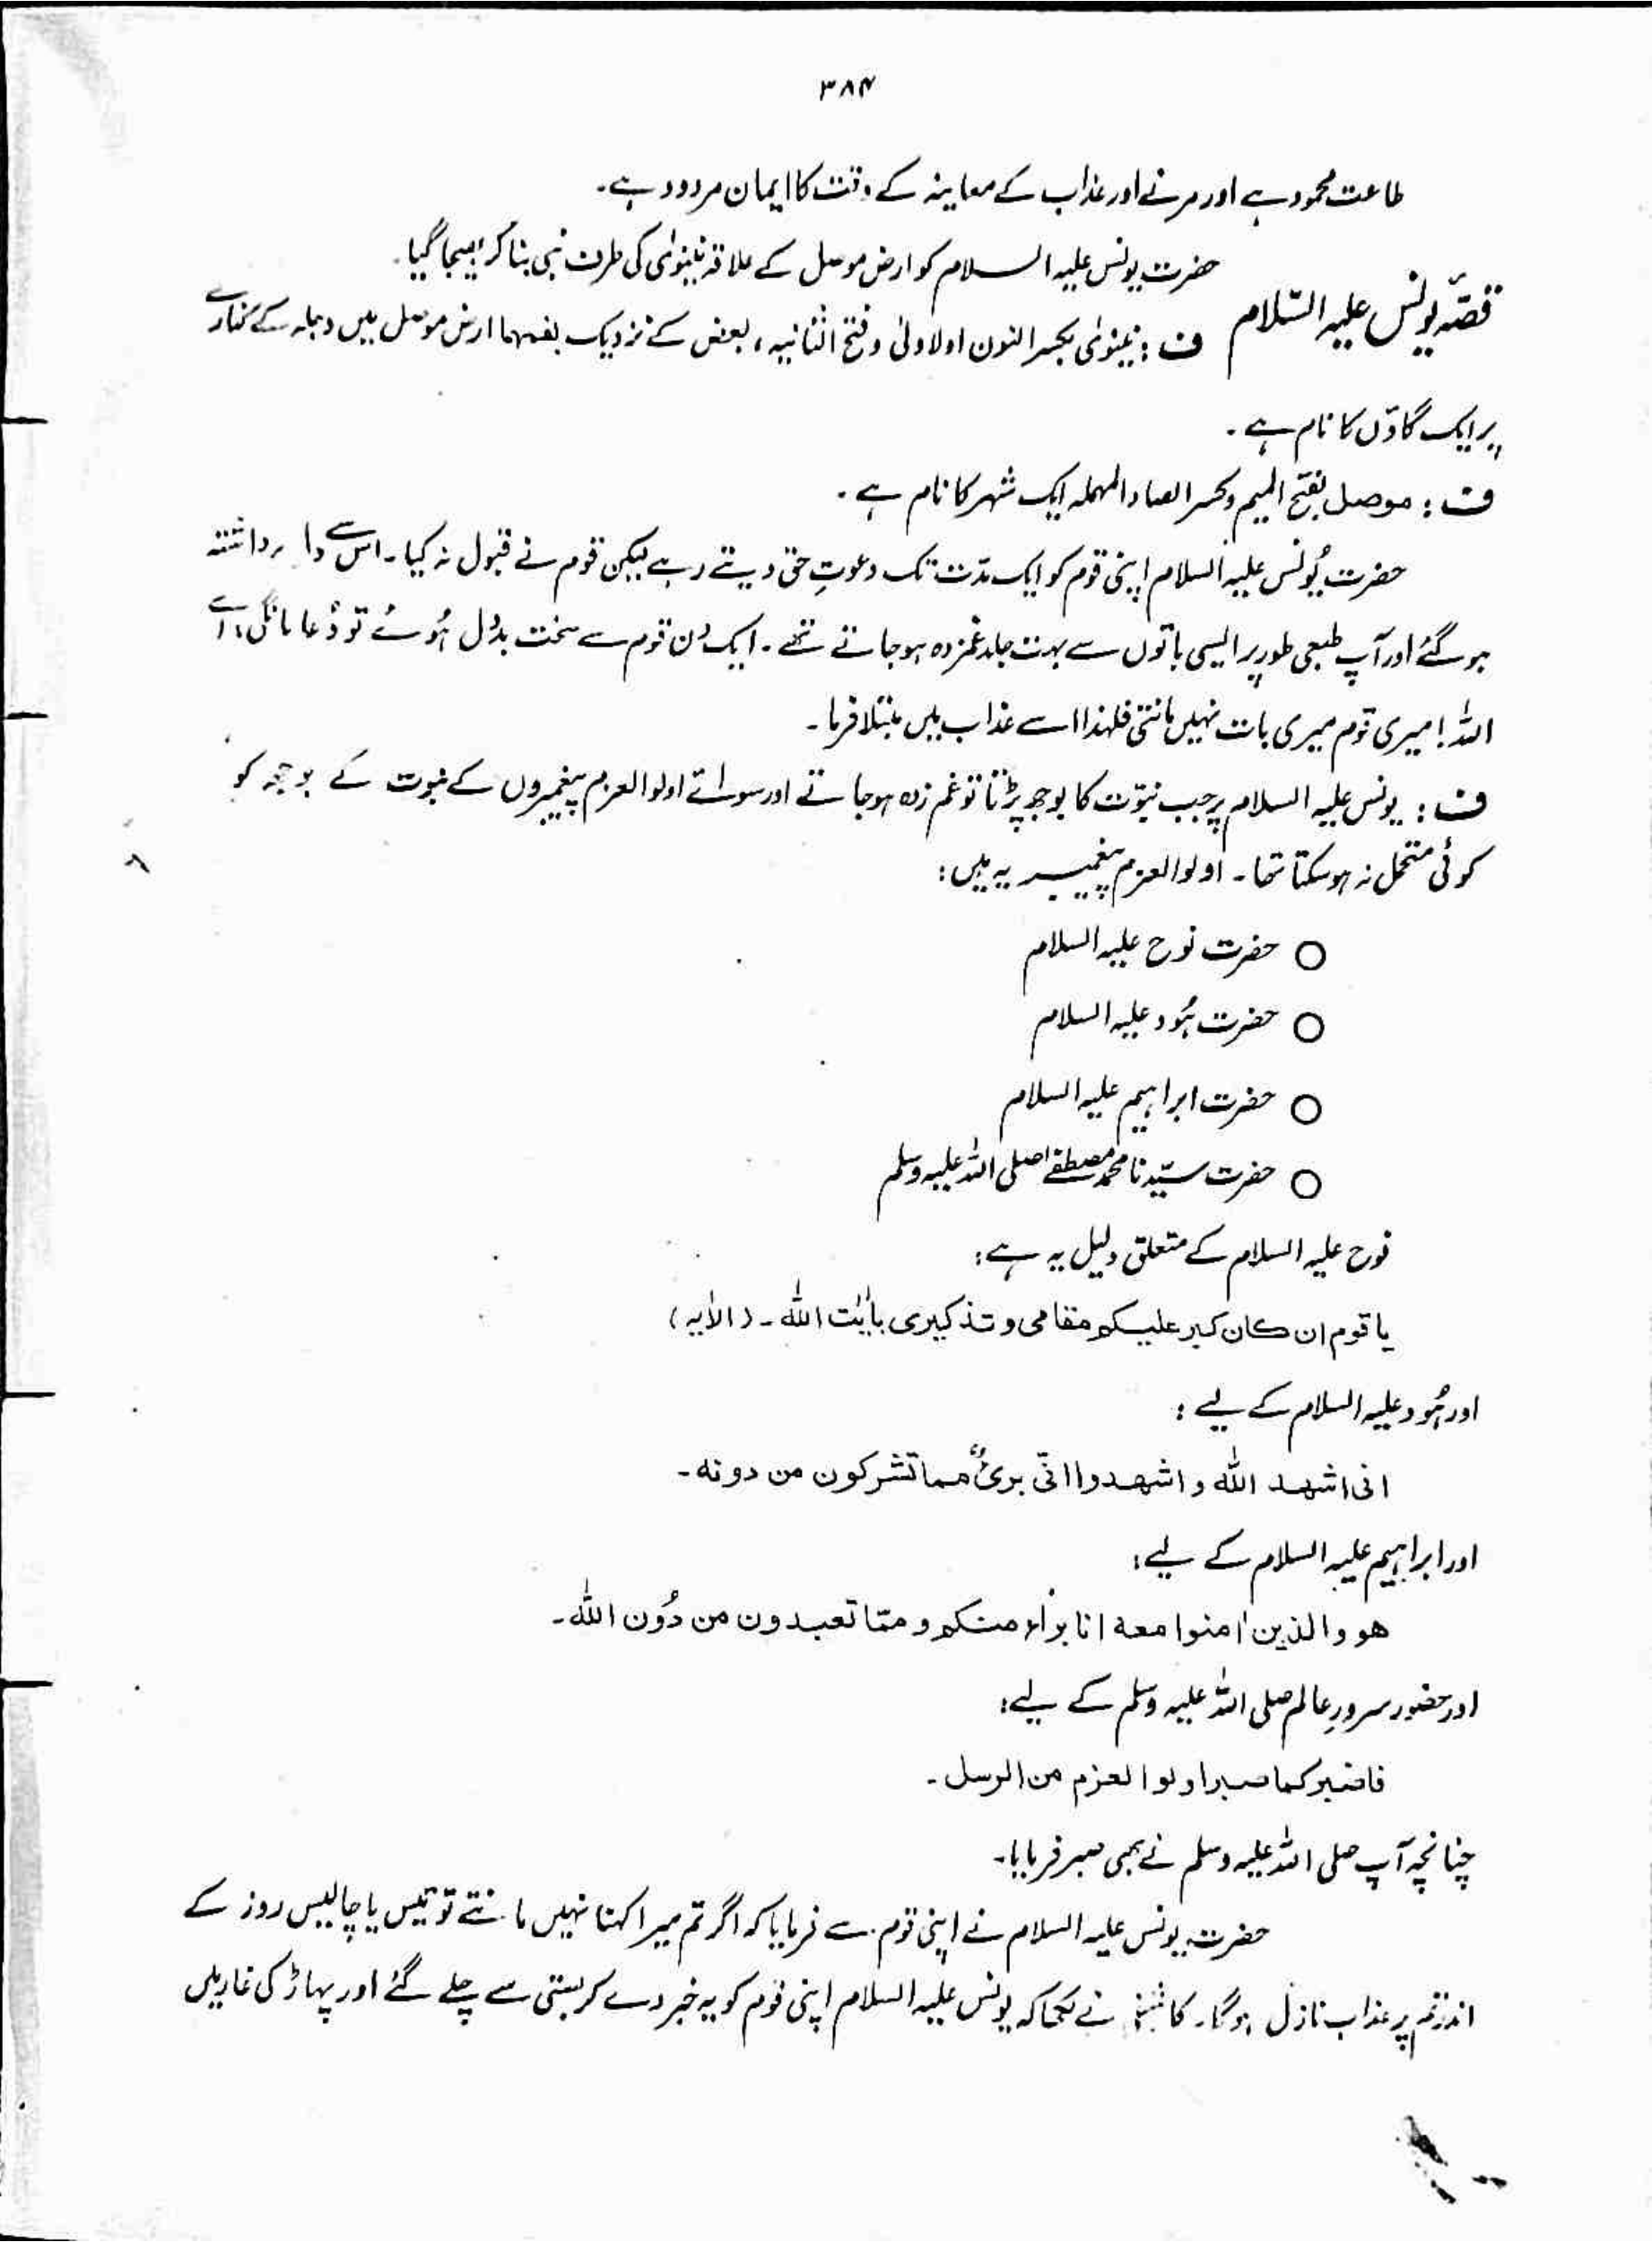 ۳۸۴
طاعت محمود ہے اور مرنے اور عذاب کے معاینہ کے وقت کا ایمان مردود ہے۔
قصّہ یونس علیہ السّلام
حضرت یونس علیہ السلام کو ارض موصل کے علاقہ نینوٰی کی طرف نبی بنا کر بھیجا گیا۔
ف : نینوٰی بکسر النون اولاولیٰ وفتح الثانیہ، بعض کے نزدیک بضمہما ارض موصل میں دجلہ کے کنارے
پر ایک گاؤں کا نام ہے۔
ف : موصل بفتح المیم وکسر الصاد المہملہ ایک شہر کا نام ہے۔
حضرت یُونس علیہ السلام اپنی قوم کو ایک مدّت تک دعوتِ حق دیتے رہے لیکن قوم نے قبول نہ کیا۔ اس سے دل برداشتہ
ہو گئے اور آپ طبعی طور پر ایسی باتوں سے بہت جلد غمزدہ ہو جاتے تھے۔ ایک دن قوم سے سخت بددل ہُوئے تو دُعا مانگی، اے
اللہ! میری قوم میری بات نہیں مانتی فلہٰذا اسے عذاب میں مبتلا فرما۔
ف : یونس علیہ السلام پر جب نبوّت کا بوجھ پڑتا تو غم زدہ ہو جاتے اور سوائے اولوالعزم پیغمبروں کے نبوت کے بوجھ کو
کوئی متحمل نہ ہو سکتا تھا۔ اولوالعزم پیغمبر یہ ہیں:
○ حضرت نوح علیہ السلام
○ حضرت ہُود علیہ السلام
○ حضرت ابراہیم علیہ السلام
○ حضرت سیّدنا محمد مصطفےٰ صلی اللہ علیہ وسلم
نوح علیہ السلام کے متعلق دلیل یہ ہے:
یا قوم ان کان کبر علیکم مقامی و تذکیری بآیٰت اللہ۔ (الاٰیہ)
اور ہُود علیہ السلام کے لیے :
انی اشھد اللہ و اشھدوا انّی برئٌ مما تشرکون من دونہ۔
اور ابراہیم علیہ السلام کے لیے:
ھو والذین اٰمنوا معہ انا برآء منکم و ممّا تعبدون من دُون اللہ۔
اور حضور سرورِ عالم صلی اللہ علیہ وسلم کے لیے:
فاصبر کما صبر اولوا العزم من الرسل۔
چنانچہ آپ صلی اللہ علیہ وسلم نے بھی صبر فرمایا۔
حضرت یونس علیہ السلام نے اپنی قوم سے فرمایا کہ اگر تم میرا کہنا نہیں مانتے تو تیس یا چالیس روز کے
اندر تم پر عذاب نازل ہوگا۔ کاشفی نے لکھا کہ یونس علیہ السلام اپنی قوم کو یہ خبر دے کر بستی سے چلے گئے اور پہاڑ کی غار میں